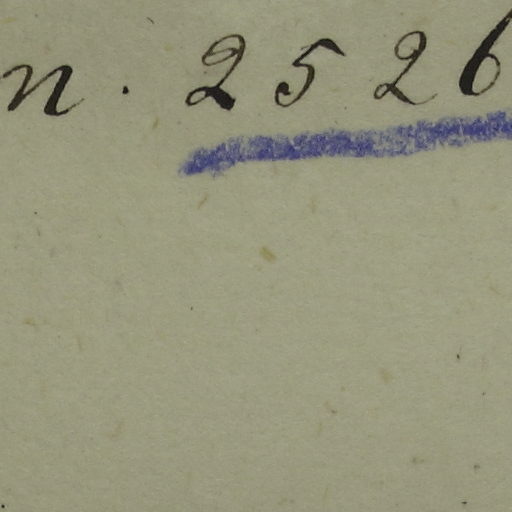 n. 2526